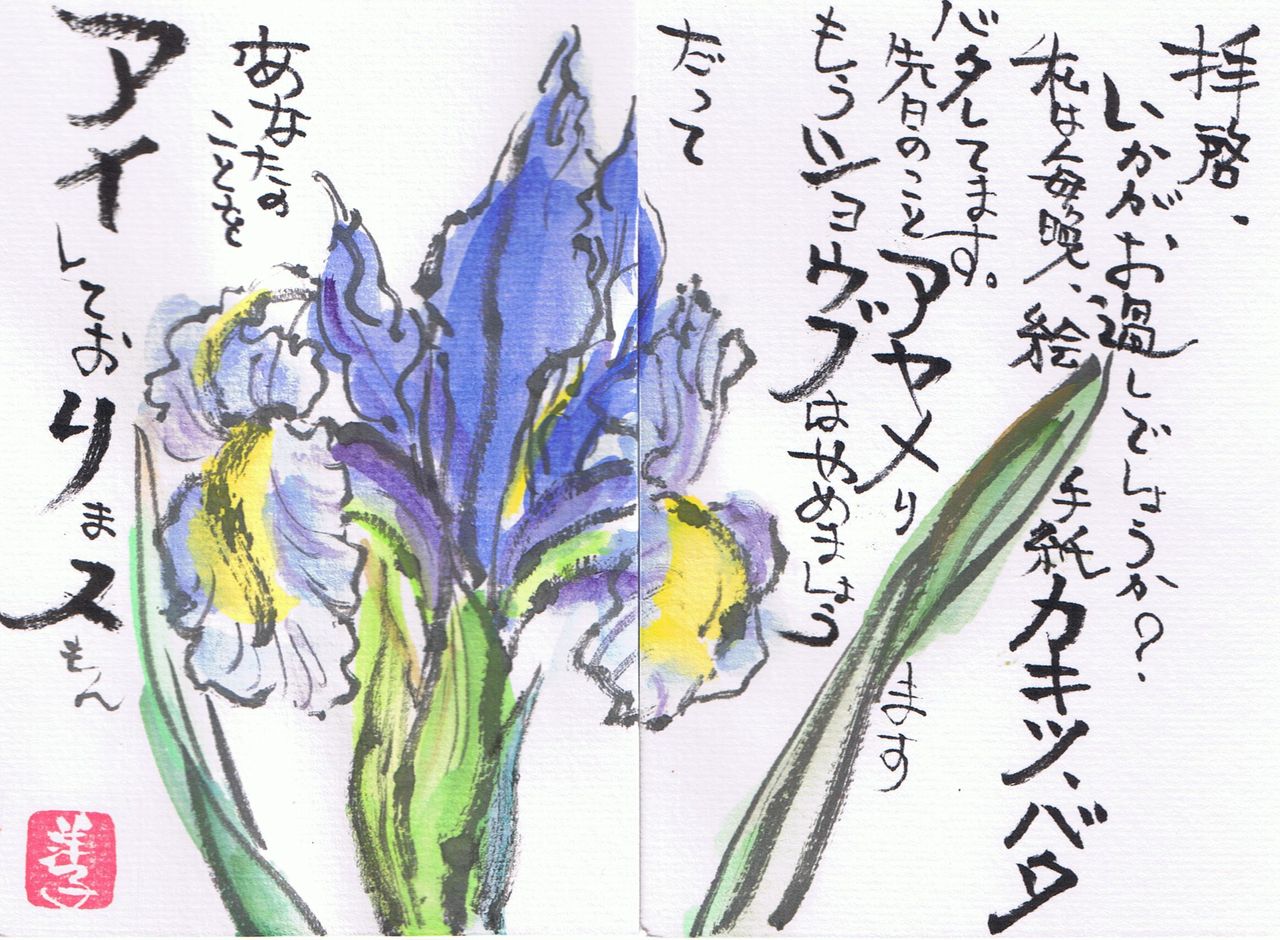 拝啓、
いかがお過しでしょうか?
私は毎晩、絵手紙カキツ、バタ
バタしてます。
先日のことアヤメります
もうショウブはやめましょう
だって
あなたの
ことを
アイしておりまスもん